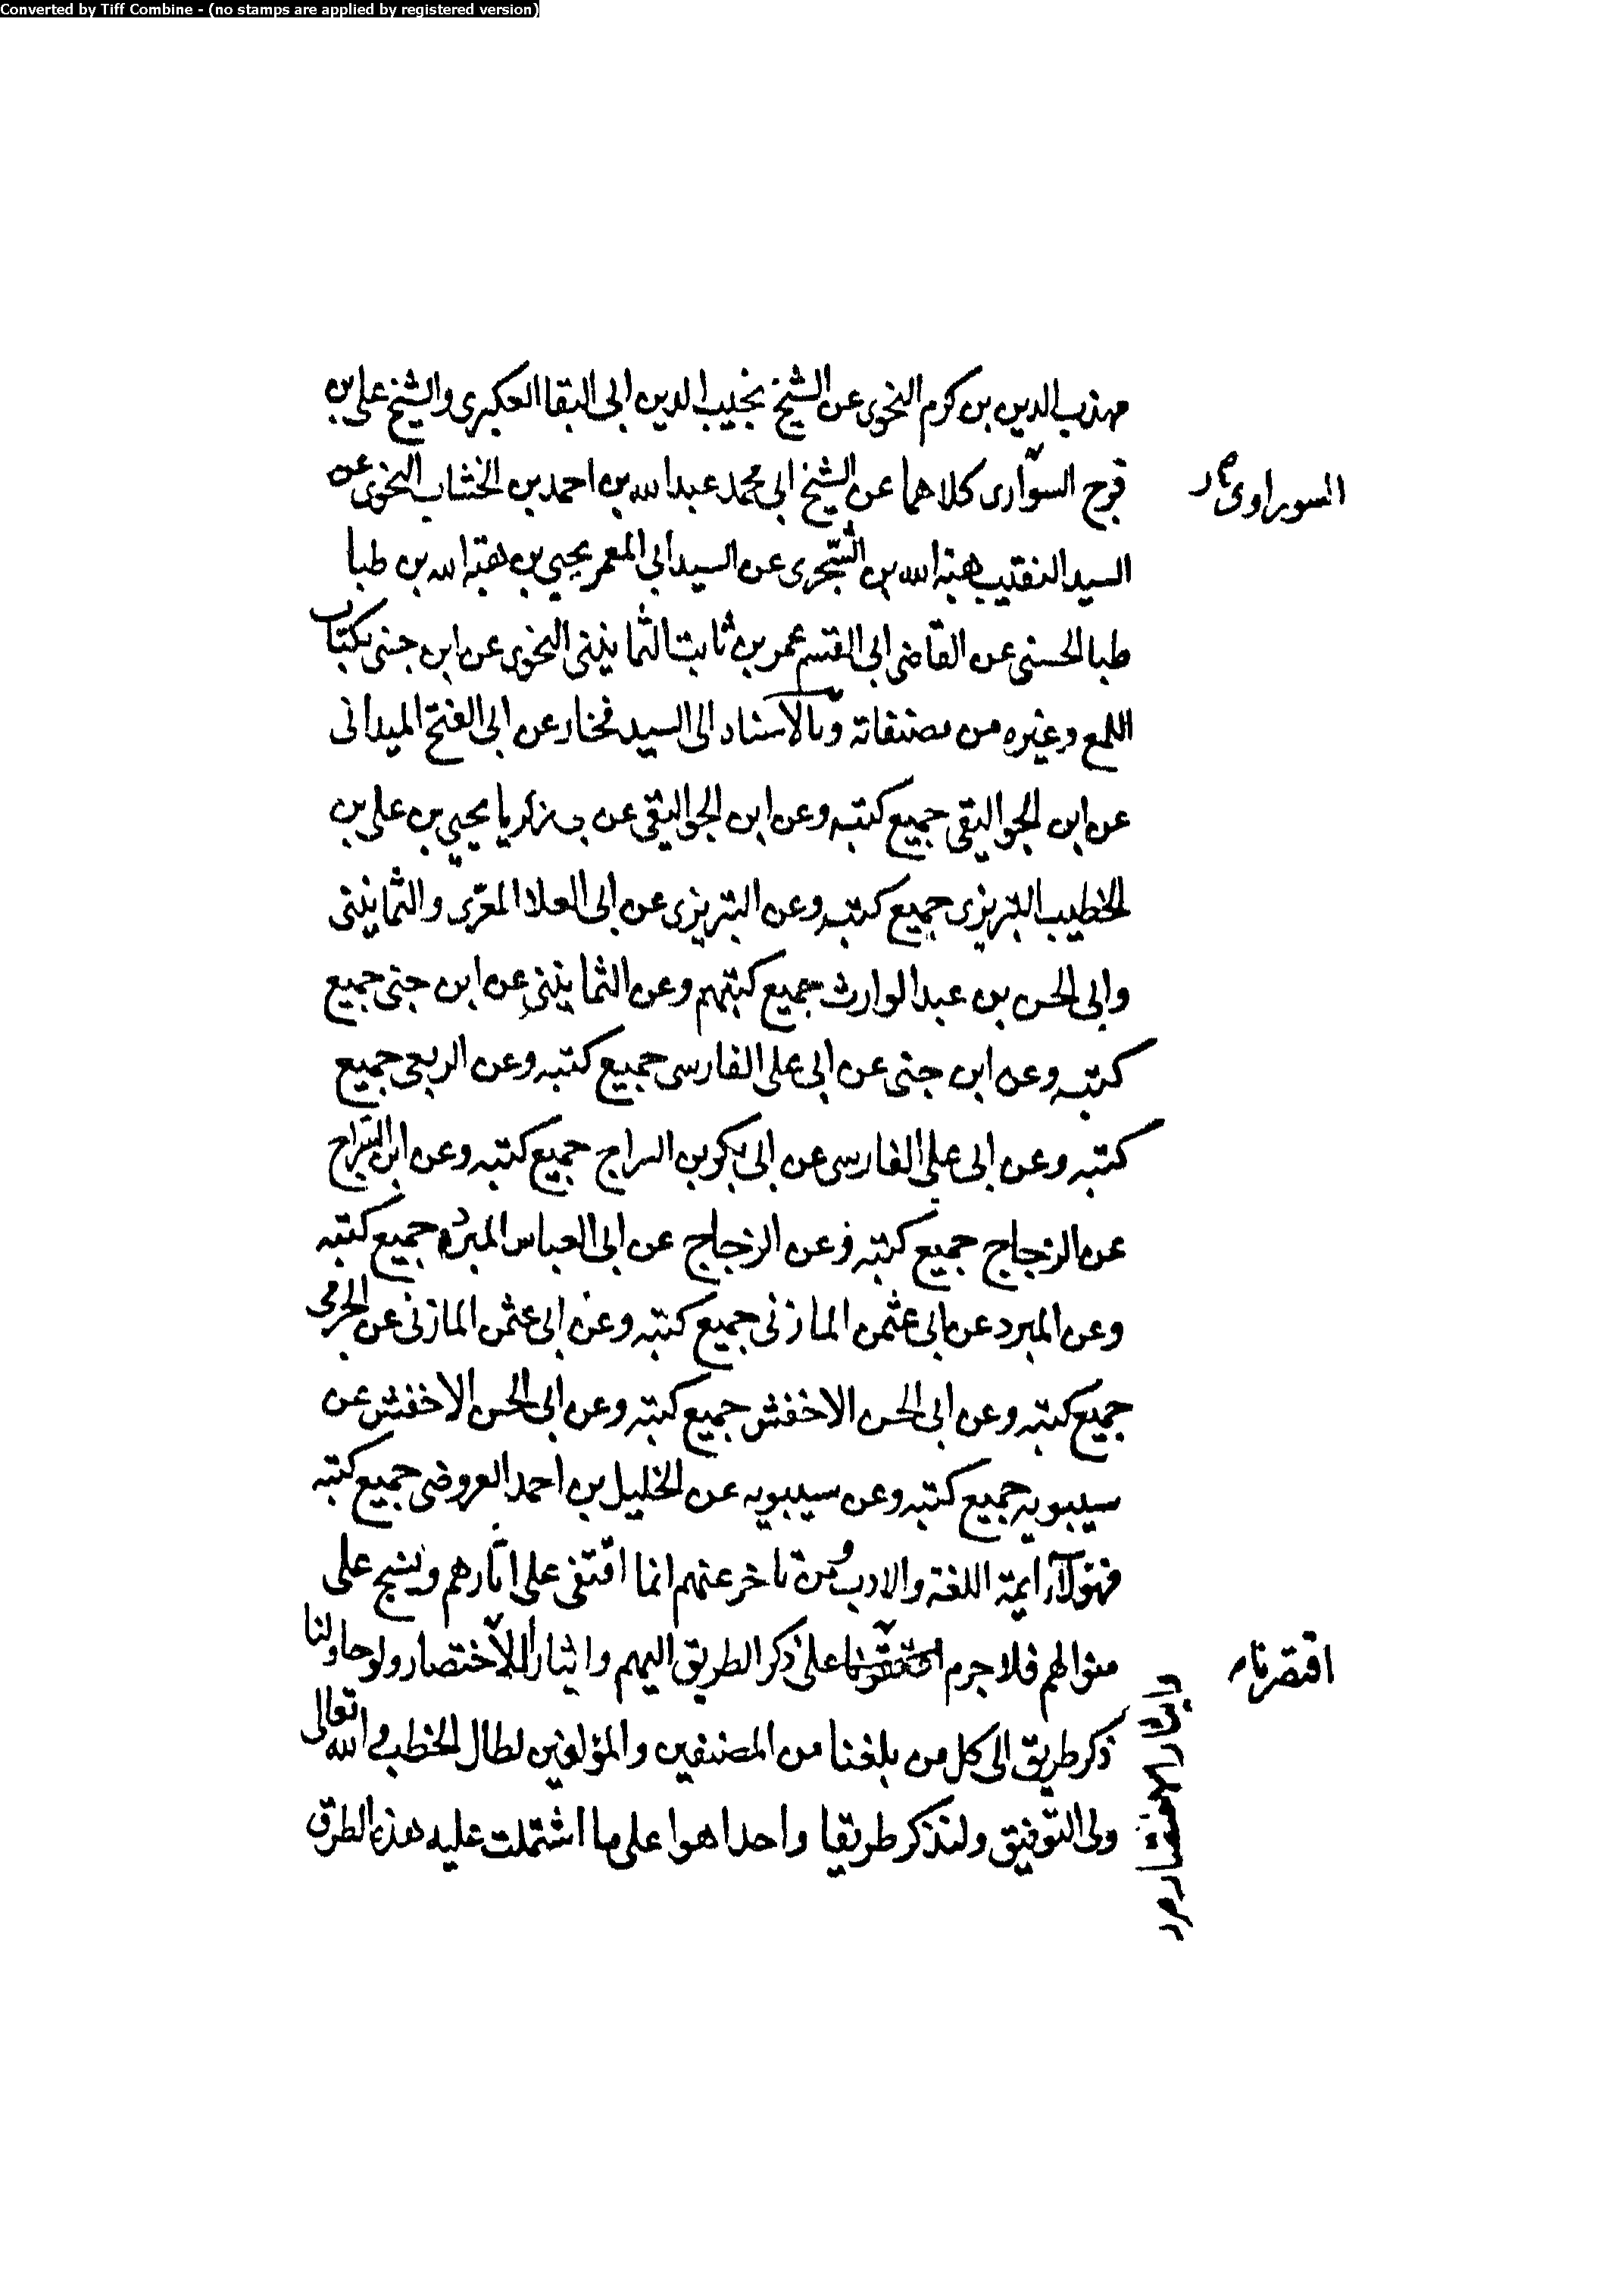 Converted by Tiff Combine - (no stamps are applied by registered version)
مهذب الدين بن كرم النحوى عن الشيخ نجيب الدين ابى البقا العكبرى والشيخ على بن
فرج السوارى كلاهما عن الشيخ ابى محمد عبد الله بن احمد بن الخشاب النحوى عن
السوراوى
السيد النقيب هبة الله بن الشجرى عن السيد ابى المعمر يحيى بن هبة الله بن طبا
طبا الحسنى عن القاضى ابى القسم عمر بن ثابت الثمانينى النحوى عن ابن جنى بكتاب
اللمع وغيره من مصنفاته وبالاسناد الى السيد فخار عن ابى الفتح الميدانى
عن ابن الجواليقى جميع كتبه وعن ابن الجواليقى عن بى زكريا يحيى بن على بن
الخطيب التبريزى جميع كتبه وعن التبريزى عن ابى العلا المعرّى والثمانينى
وابى الحسن بن عبد الوارث جميع كتبهم وعن الثمانينى عن ابن جنى جميع
كتبه وعن ابن جنى عن ابى على الفارسى جميع كتبه وعن الربعى جميع
كتبه وعن ابى على الفارسى عن ابى بكر بن السراج جميع كتبه وعن ابن السّراج
عن الزجاج جميع كتبه وعن الزجاج عن ابى العباس المبرد جميع كتبه
وعن المبرد عن ابى عثمن المازنى جميع كتبه وعن ابى عثمن المازنى عن الجرمى
جميع كتبه وعن ابى الحسن الاخفش جميع كتبه وعن ابى الحسن الاخفش عن
سيبويه جميع كتبه وعن سيبويه عن الخليل بن احمد العروضى جميع كتبه
فهؤلآء ايمة اللغة والادب ومن تاخر عنهم انما اقتفى على اثارهم ونسج على
منوالهم فلا جرم على ذكر الطريق اليهم وايثارا للاختصار ولو حاولنا
اقتصرنا
ذكر طريق الى كل من بلغنا من المصنفين والمؤلفين لطال الخطب والله تعالى
ولى التوفيق ولنذكر طريقا واحدا هو اعلى ما اشتملت عليه هذه الطرق